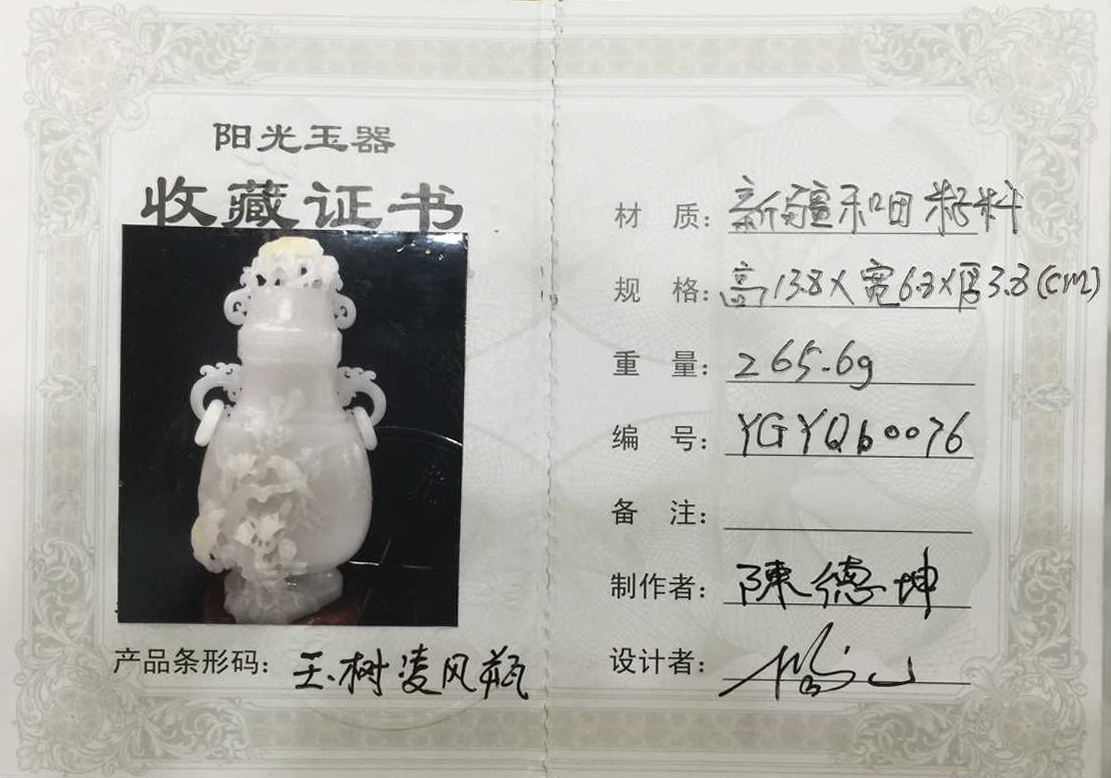 阳光玉器
收藏证书
产品条形码：玉树凌风瓶
材 质：新疆和田籽料
规 格：高13.8×宽6.8×厚3.8(cm)
重 量：265.6g
编 号：YGYQb0076
备 注：
制作者：陳德坤
设计者：